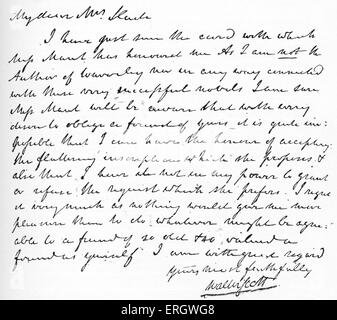 My dear Mrs. Slade
I have just seen the card with which
Miss Mant has honoured me As I am not the
Author of Waverley nor in any way connected
with those very successful novels I am sure
Miss Mant will be aware that with every
desire to oblige a friend of yours, it is quite im:
possible that I can have the honour of accepting
the flattering inscription which she proposes &
also that I have it not in my power to grant
or refuse the request which she prefers. I regret
it very much as nothing would give me more
pleasure than to do whatever might be agre:
able to a friend of so old & so valued a
friend as yourself I am with great regard
yours most faithfully
Walter Scott
alamy
Image ID: ERGWG8
www.alamy.com